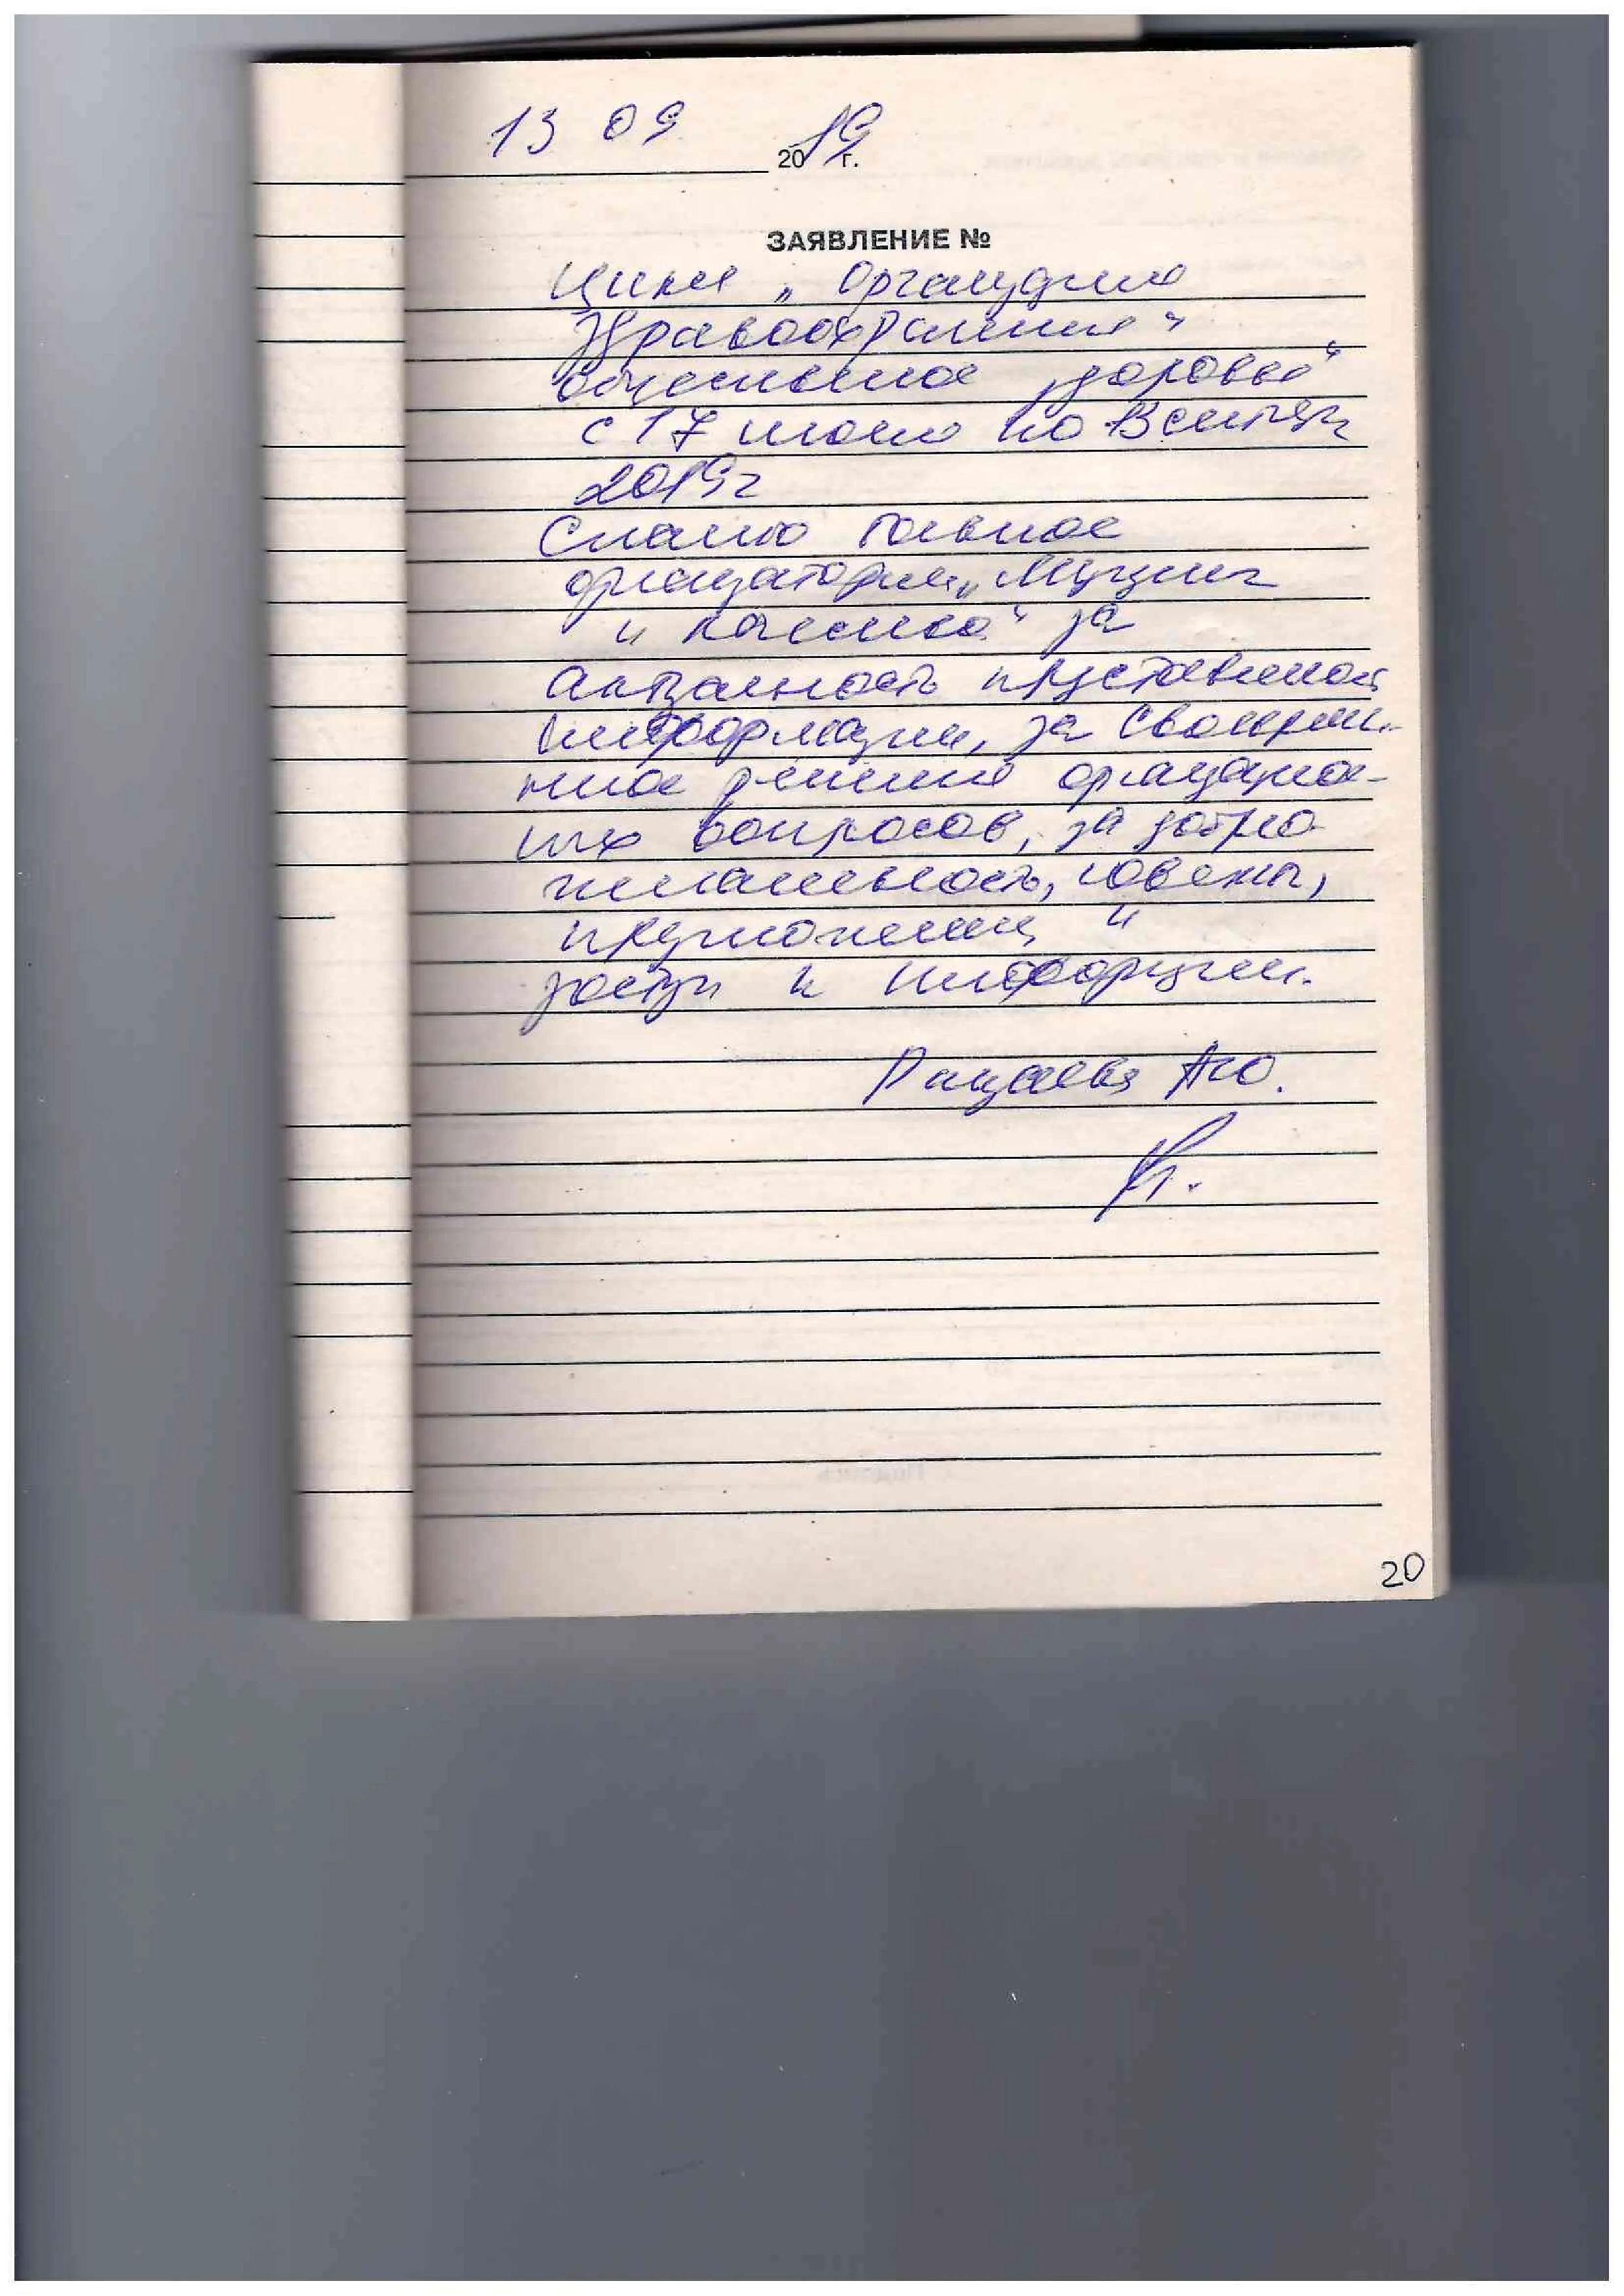 13 09 2019 г.
ЗАЯВЛЕНИЕ №
Цикл „Организация
Здравоохранения"
общественное здоровье"
с 17 июня по 13 сентября
2019г
Спасибо
организаторам „Медицина
и качество" за
актуальность предоставленной
информации, за своевремен-
ное решение организацион-
ных вопросов, за добро
желательность, советы,
предложения и
доступ к информации.
А.Ю.
20